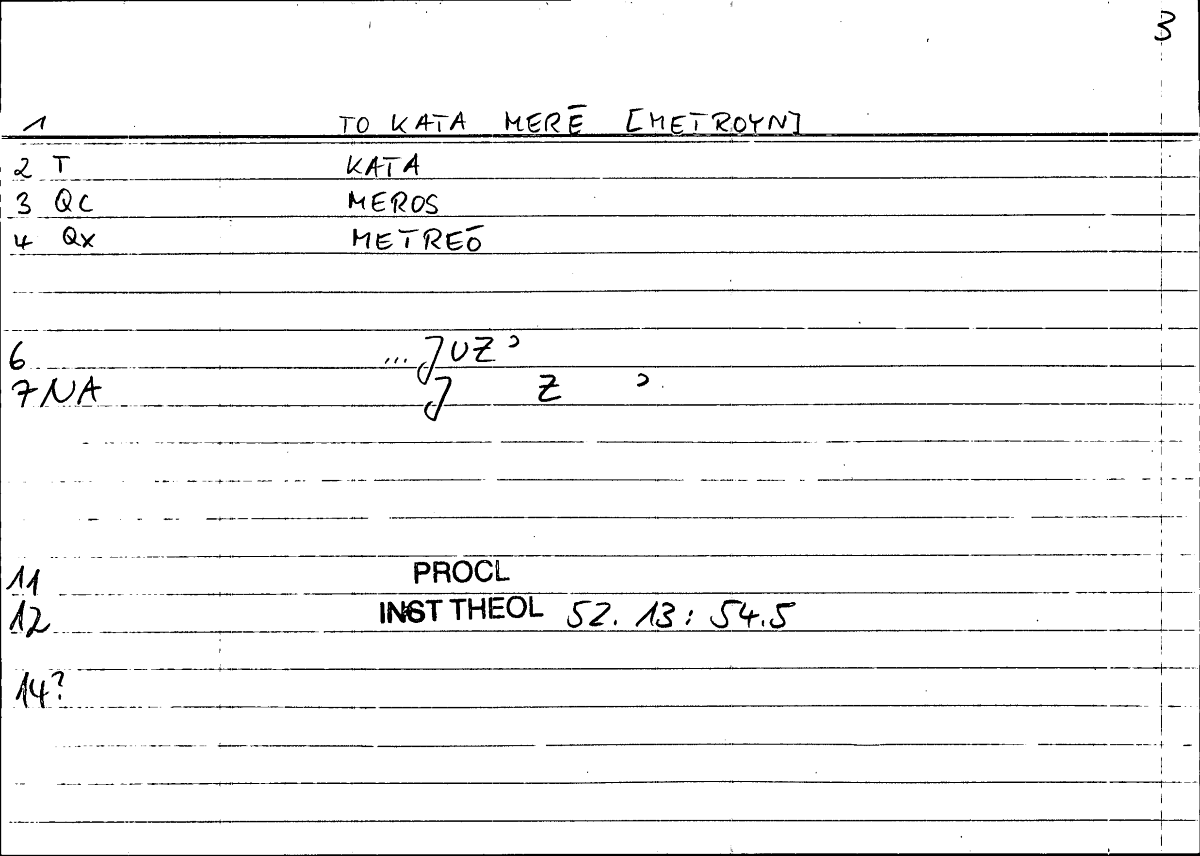 3
1 TO KATA MERĒ [METROYN]
2 T KATA
3 QC MEROS
4 Qx METREŌ
6 ... JUZʾ
7 NA J Z ʾ
11 PROCL
12 INST THEOL 52. 13: 54.5
14?